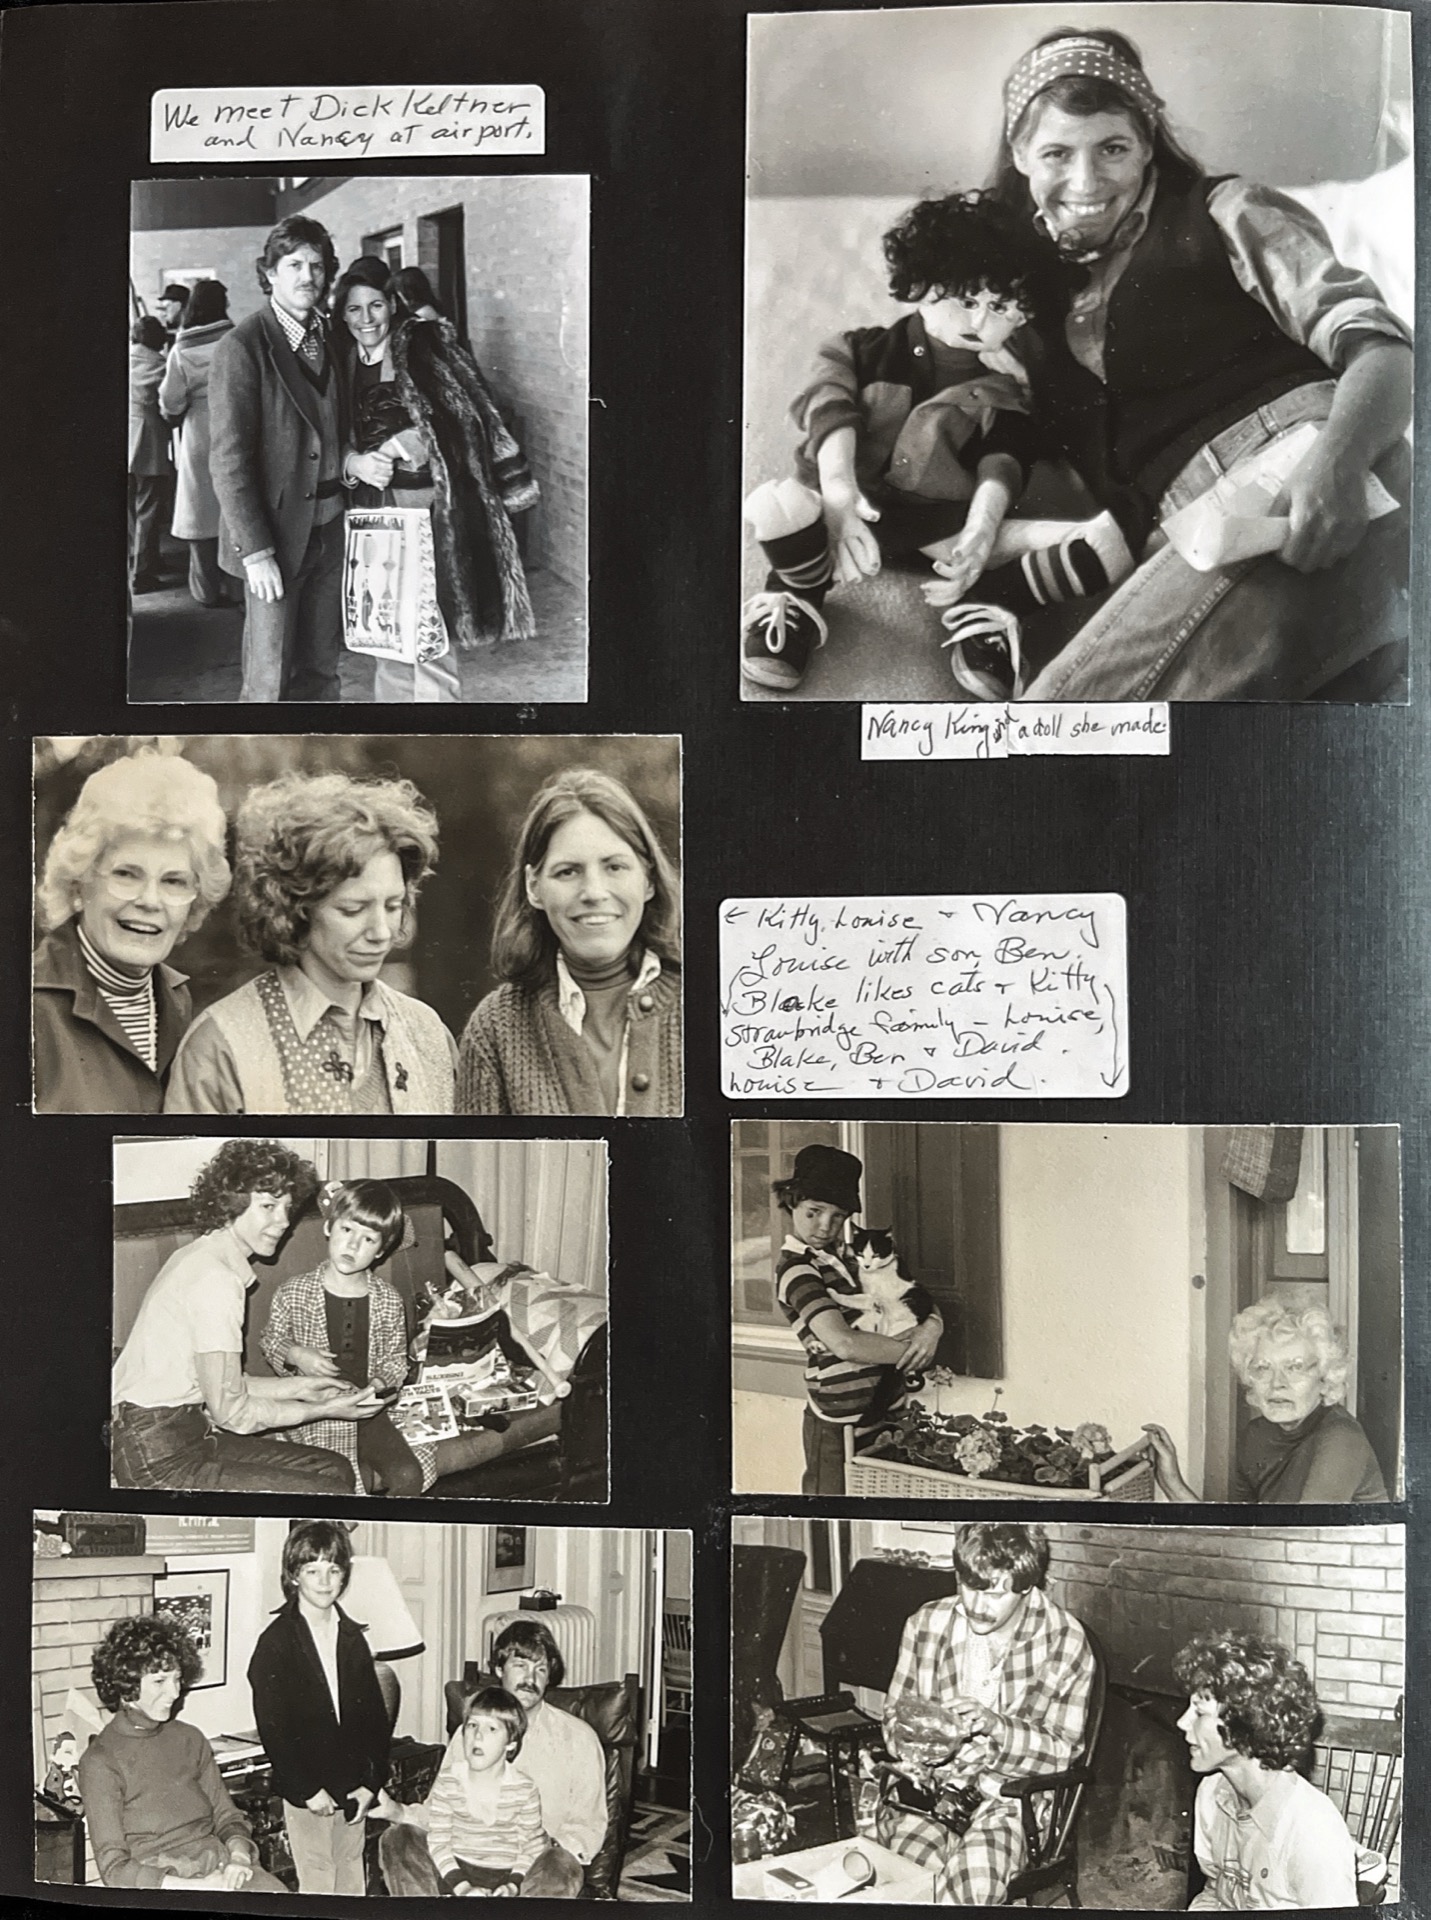 We meet Dick Keltner
and Nancy at airport.
Nancy King and a doll she made
← Kitty, Louise + Nancy
Louise with son, Ben.
Blake likes cats + Kitty
Strawbridge family - Louise,
Blake, Ben + David.
Louise + David.